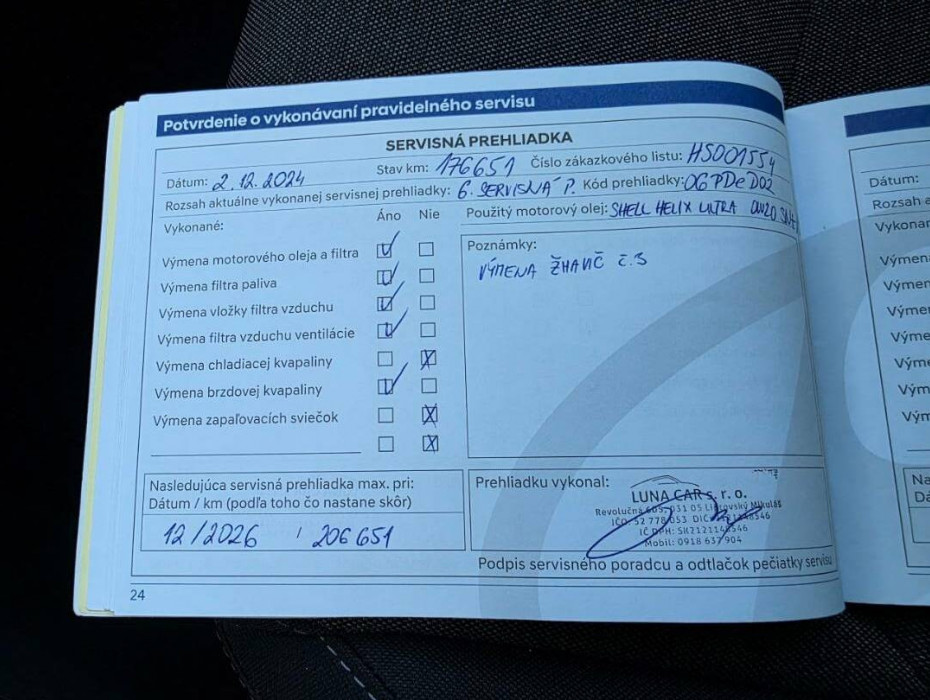 Potvrdenie o vykonávaní pravidelného servisu
SERVISNÁ PREHLIADKA
Dátum: 2.12.2024 Stav km: 176651 Číslo zákazkového listu: HS001554
Rozsah aktuálne vykonanej servisnej prehliadky: 6. SERVISNÁ P. Kód prehliadky: 06PDeD02
Vykonané: Áno Nie Použitý motorový olej: SHELL HELIX ULTRA 0W20
Výmena motorového oleja a filtra
Výmena filtra paliva
Výmena vložky filtra vzduchu
Výmena filtra vzduchu ventilácie
Výmena chladiacej kvapaliny
Výmena brzdovej kvapaliny
Výmena zapaľovacích sviečok
Poznámky:
VÝMENA ŽHAVIČ Č.3
Nasledujúca servisná prehliadka max. pri:
Dátum / km (podľa toho čo nastane skôr)
12/2026 / 206651
Prehliadku vykonal:
LUNA CAR s. r. o.
Revolučná 605, 031 05 Liptovský Mikuláš
IČO: 52 778 053 DIČ:
IČ DPH:
Mobil: 0918 637 904
Podpis servisného poradcu a odtlačok pečiatky servisu
24
Dátum:
Rozsah a
Vykonan
Výmen
Výmen
Výmen
Výme
Výme
Vým
Vým
Na
Dá